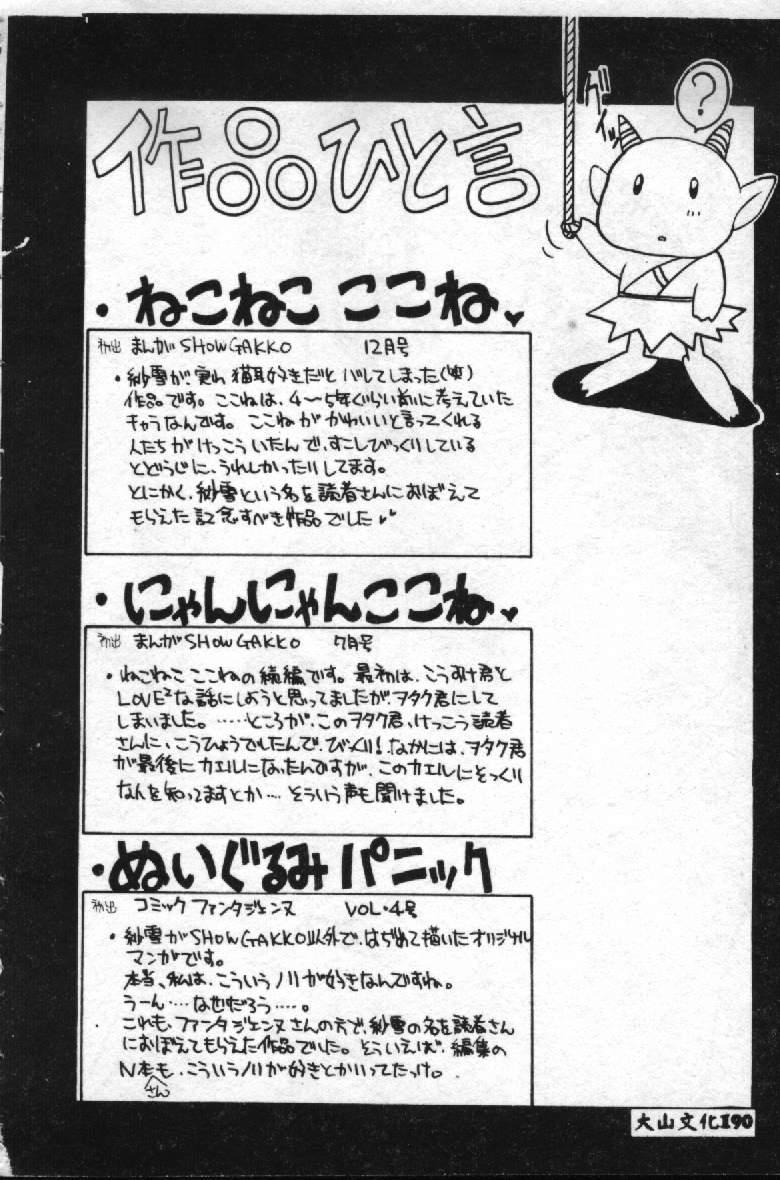 作品ひと言
?
グイッ
・ねこねこ ここね♥
初出 まんがSHOW GAKKO 12月号
・紗雪が、実は猫耳好きだとバレてしまった(笑)
作品です。ここねは、4〜5年ぐらい前に考えていた
キャラなんです。ここねがかわいいと言ってくれる
人たちがけっこういたんで、すこしびっくりしている
とどうじに、うれしかったりしてます。
とにかく、紗雪という名を読者さんにおぼえて
もらえた記念すべき作品でした♥♥
・にゃんにゃんここね♥
初出 まんがSHOW GAKKO 7月号
・ねこねこ ここねの続編です。最初は、こうすけ君と
LOVE²な話にしようと思ってましたが、ヲタク君にして
しまいました。……ところが、このヲタク君、けっこう読者
さんに、こうひょうでしたんで、びっくり!なかには、ヲタク君
が最後にカエルになったんですが、このカエルにそっくり
なんを知ってますとか…、そういう声も聞けました。
・ぬいぐるみパニック
初出 コミックファンタジェンヌ VOL・4号
・紗雪がSHOW GAKKO以外で、はじめて描いたオリジナル
マンガです。
本当、私は、こういうノリが好きなんですね。
うーん…なぜだろう……。
これも、ファンタジェンヌさんの方で、紗雪の名を読者さん
におぼえてもらえた作品でした。そういえば、編集の
N本さんも、こういうノリが好きとかいってたっけ。
大山文化190